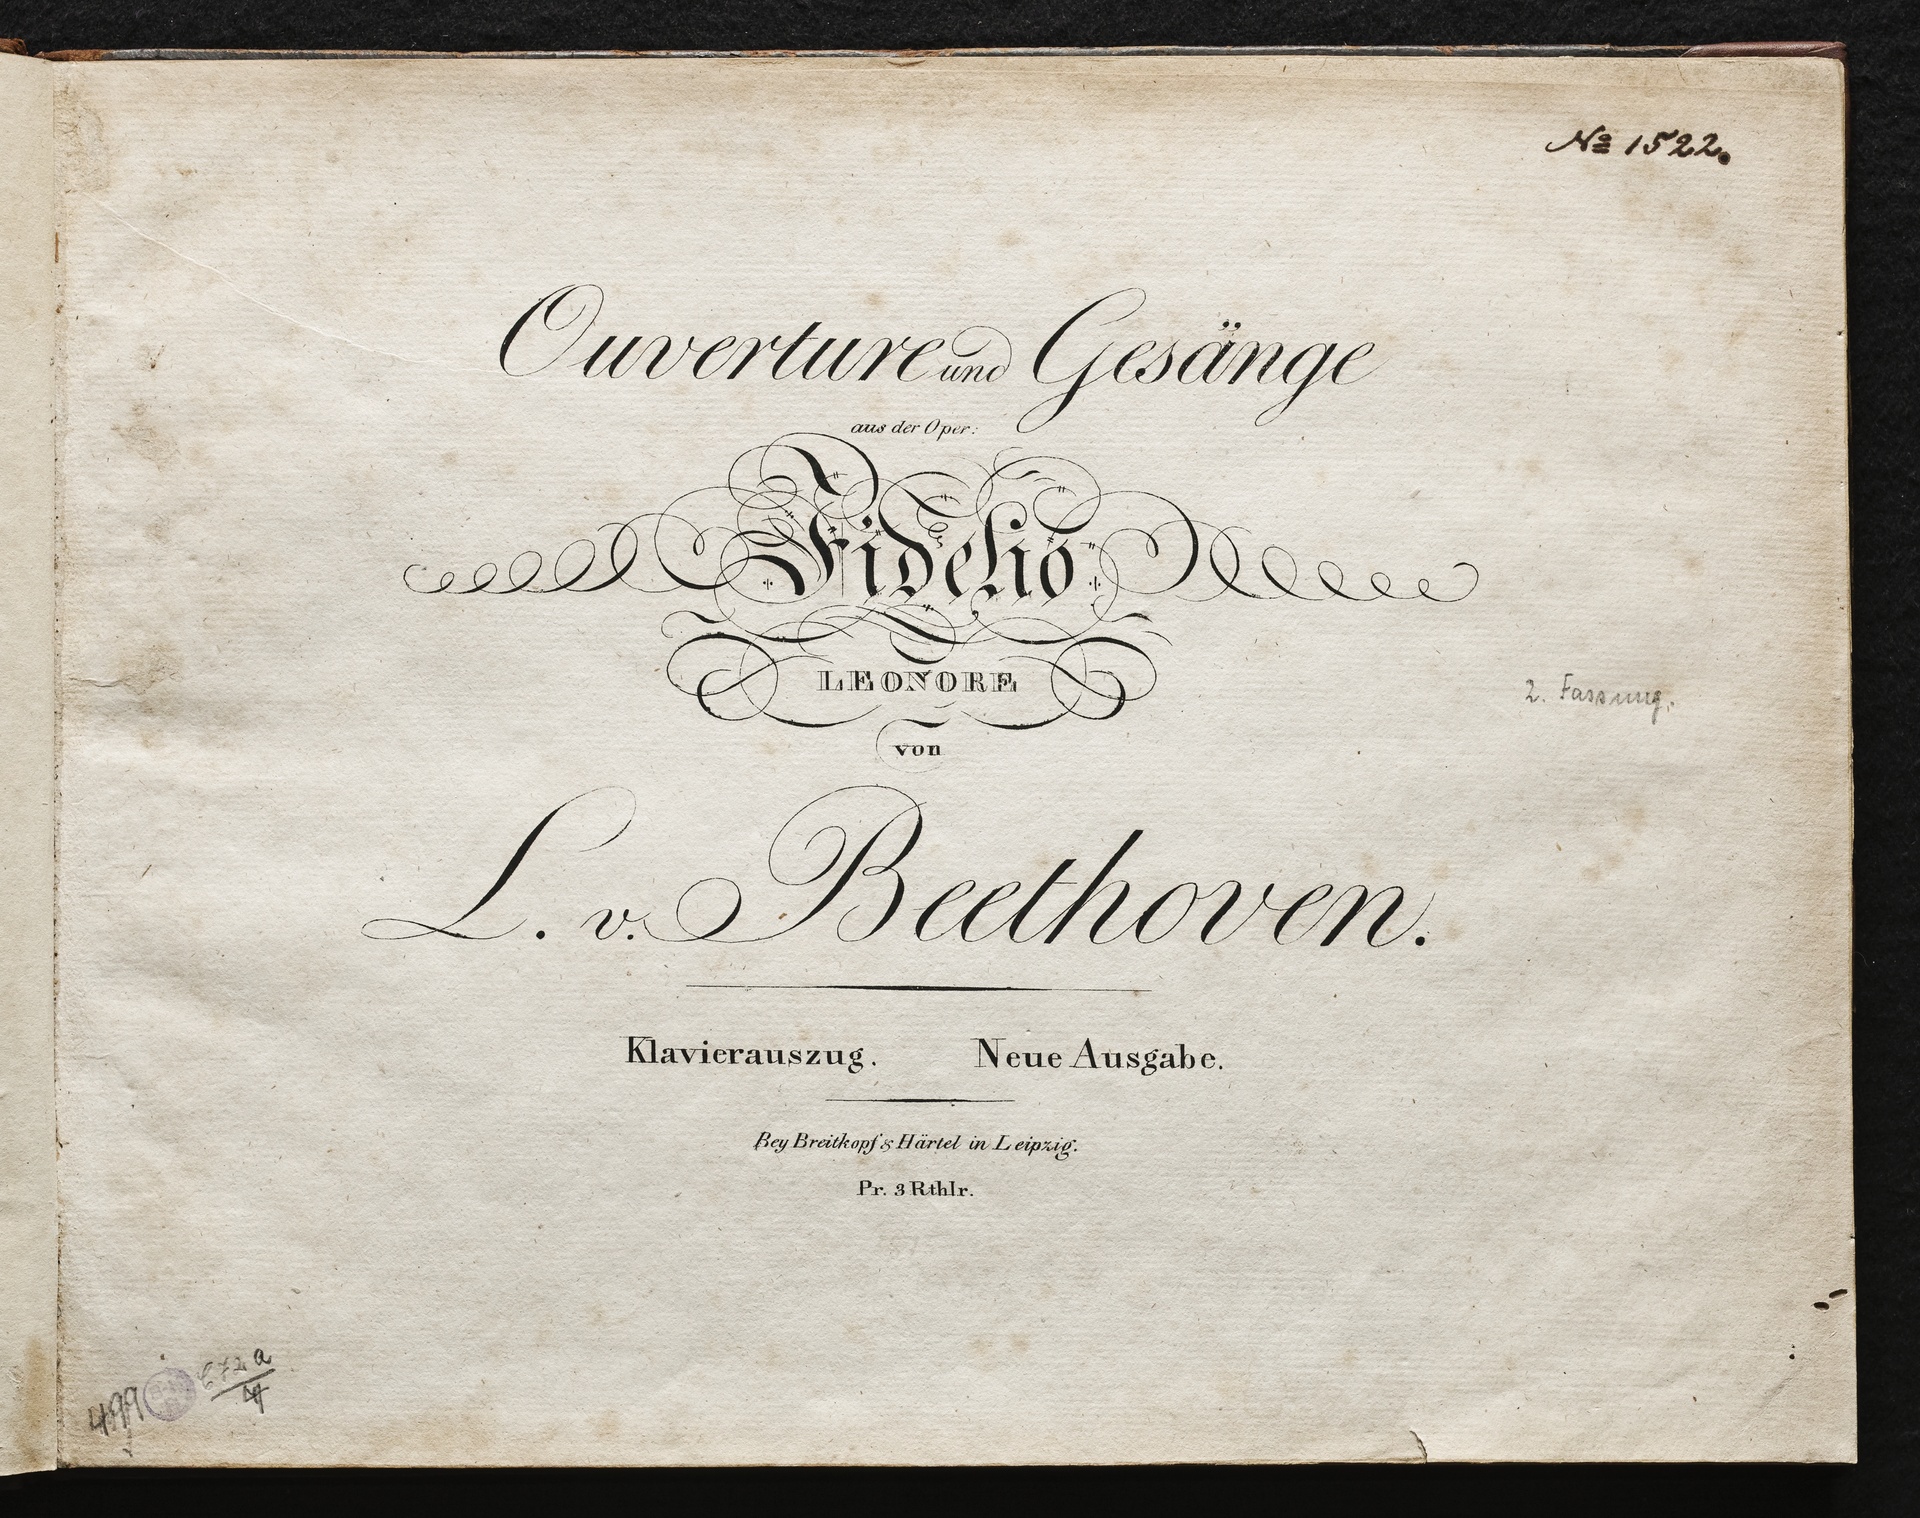 No 1522.
Ouverture und Gesänge
aus der Oper:
Fidelio
LEONORE
von
L. v. Beethoven.
2. Fassung.
Klavierauszug. Neue Ausgabe.
Bey Breitkopf & Härtel in Leipzig.
Pr. 3 Rthlr.